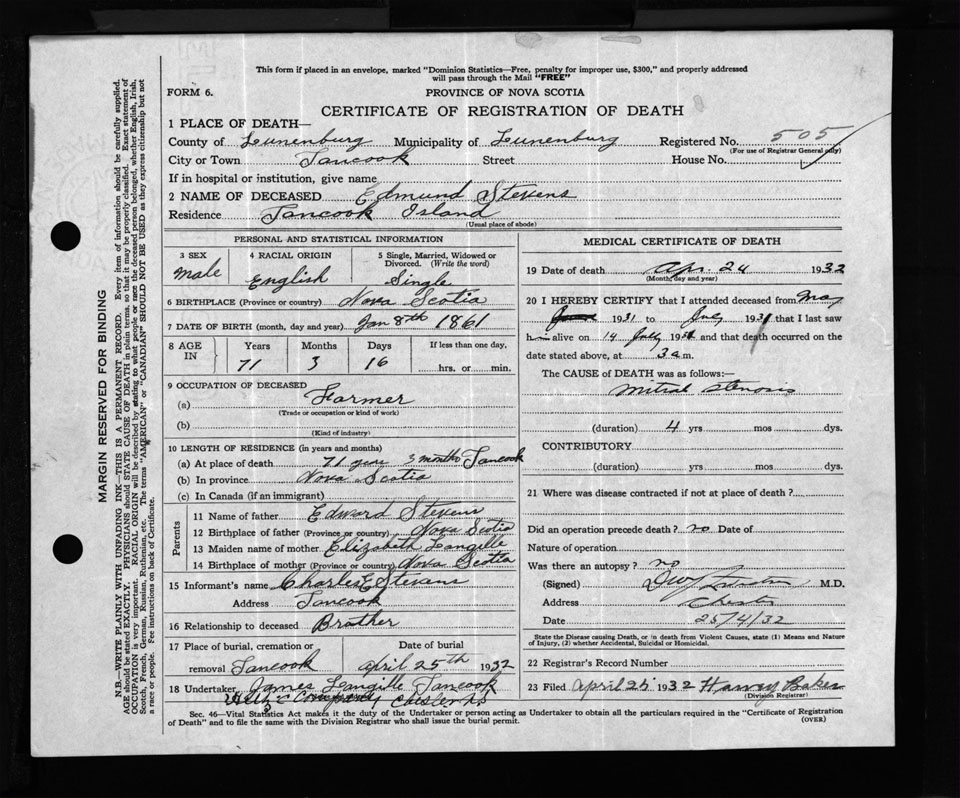 This form if placed in an envelope, marked "Dominion Statistics—Free, penalty for improper use, $300," and properly addressed
will pass through the Mail "FREE"
FORM 6.
PROVINCE OF NOVA SCOTIA
CERTIFICATE OF REGISTRATION OF DEATH
1 PLACE OF DEATH—
County of Lunenburg Municipality of Lunenburg Registered No. 505
(For use of Registrar General only)
City or Town Tancook Street House No.
If in hospital or institution, give name
2 NAME OF DECEASED Edmund Stevens
Residence Tancook Island
(Usual place of abode)
PERSONAL AND STATISTICAL INFORMATION
3 SEX
Male
4 RACIAL ORIGIN
English
5 Single, Married, Widowed or
Divorced. (Write the word)
Single
6 BIRTHPLACE (Province or country) Nova Scotia
7 DATE OF BIRTH (month, day and year) Jan 8th 1861
8 AGE IN
Years Months Days If less than one day,
71 3 16 hrs. or min.
9 OCCUPATION OF DECEASED
(a) Farmer
(Trade or occupation or kind of work)
(b)
(Kind of industry)
10 LENGTH OF RESIDENCE (in years and months)
(a) At place of death 71 year 3 months Tancook
(b) In province Nova Scotia
(c) In Canada (if an immigrant)
Parents
11 Name of father Edward Stevens
12 Birthplace of father (Province or country) Nova Scotia
13 Maiden name of mother Elizabeth Langille
14 Birthplace of mother (Province or country) Nova Scotia
15 Informant's name Charles E Stevens
Address Tancook
16 Relationship to deceased Brother
17 Place of burial, cremation or
removal Tancook
Date of burial
April 25th 1932
18 Undertaker Agnes Langille Tancook
Company Chester NS
MEDICAL CERTIFICATE OF DEATH
19 Date of death Apr. 24 1932
(Month, day and year)
20 I HEREBY CERTIFY that I attended deceased from May
1931 to July 1931 that I last saw
him alive on 14 July 1931 and that death occurred on the
date stated above, at 3 a m.
The CAUSE of DEATH was as follows:—
Mitral stenosis
(duration) 4 yrs mos dys.
CONTRIBUTORY
(duration) yrs mos dys.
21 Where was disease contracted if not at place of death?
Did an operation precede death? no Date of
Nature of operation
Was there an autopsy? no
(Signed) M.D.
Address Chester
Date 25/4/32
State the Disease causing Death, or in death from Violent Causes, state (1) Means and Nature
of Injury, (2) whether Accidental, Suicidal or Homicidal.
22 Registrar's Record Number
23 Filed April 25 1932 Harvey Baker
(Division Registrar)
Sec. 46—Vital Statistics Act makes it the duty of the Undertaker or person acting as Undertaker to obtain all the particulars required in the "Certificate of Registration
of Death" and to file the same with the Division Registrar who shall issue the burial permit.
(OVER)
MARGIN RESERVED FOR BINDING
N.B.—WRITE PLAINLY WITH UNFADING INK—THIS IS A PERMANENT RECORD. Every item of information should be carefully supplied.
AGE should be stated EXACTLY. PHYSICIANS should STATE CAUSE OF DEATH in plain terms, so that it may be properly classified. Exact statement of
OCCUPATION is very important. RACIAL ORIGIN will be described by stating to what people or race the deceased person belonged, whether English, Irish,
Scotch, French, German, Russian, Ruthenian, etc. The terms "AMERICAN" or "CANADIAN" SHOULD NOT BE USED as they express citizenship but not
a race or people. Fee instructions on back of Certificate.